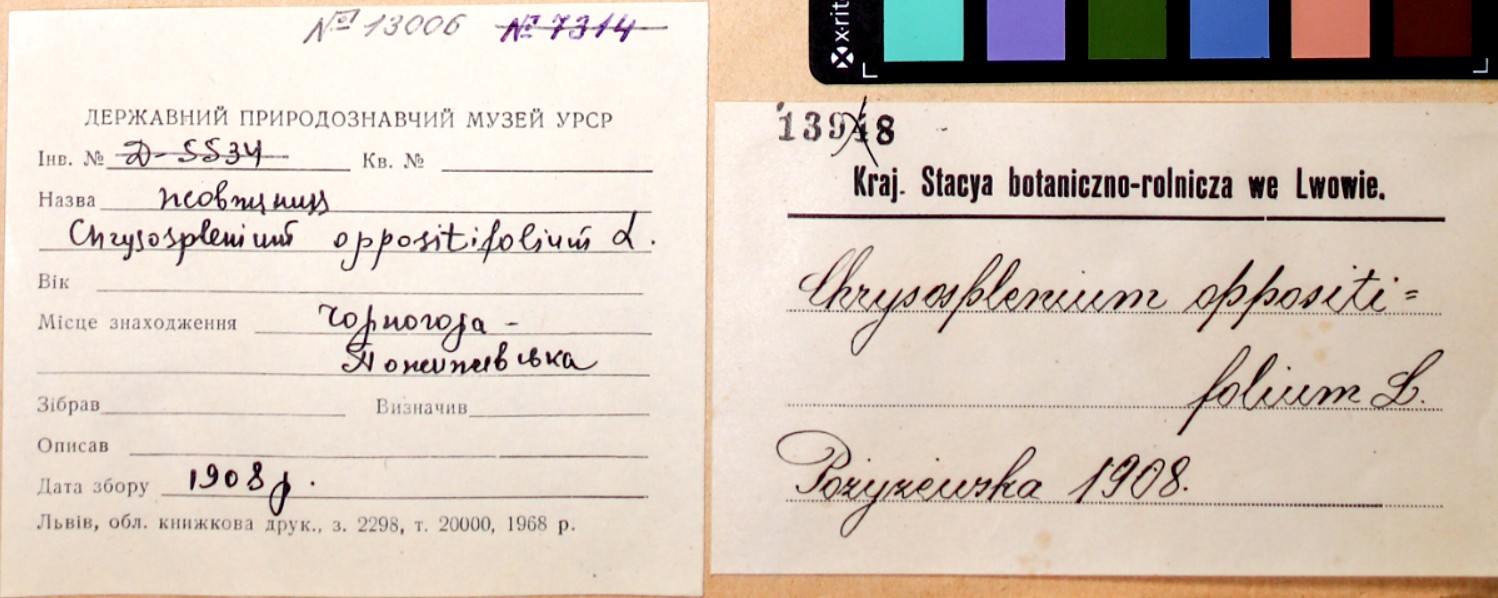 № 13006 № 7314
ДЕРЖАВНИЙ ПРИРОДОЗНАВЧИЙ МУЗЕЙ УРСР
Інв. № Д-5534 Кв. №
Назва жовтяниця
Chrysosplenium oppositifolium L.
Вік
Місце знаходження Чорногора -
Пожижевська
Зібрав Визначив
Описав
Дата збору 1908 р.
Львів, обл. книжкова друк., з. 2298, т. 20000, 1968 р.
x-rit
13948
Kraj. Stacya botaniczno-rolnicza we Lwowie.
Chrysosplenium oppositi=
folium L.
Pożyżewska 1908.